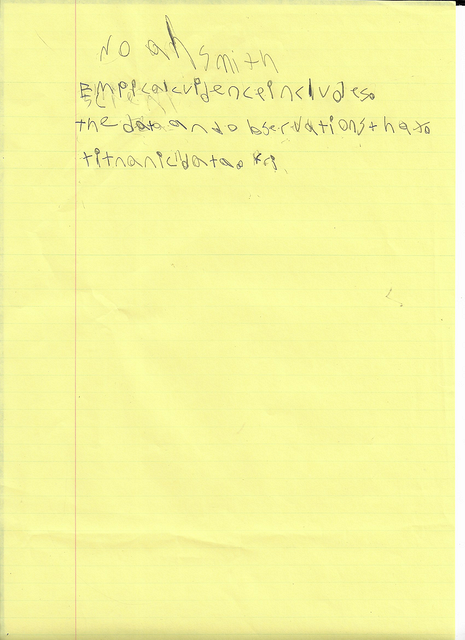 Noah Smith
Empicalcvidenceincludes.
the data and observations tha
titnanic data.